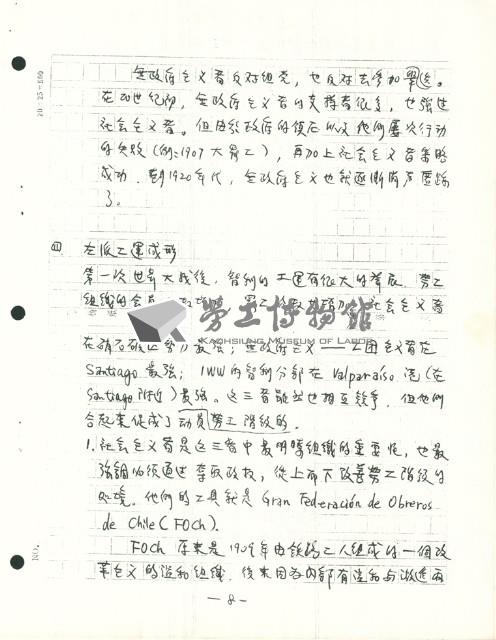 20-25=500
無政府主義者反對組党，也反對去參加選舉。
在20世紀初，無政府主義者的支持者很多，也強過
社會主義者。但由於政府的鎮压以及他們屢次行動
的失敗（例：1907大罷工），再加上社會主義者策略
成功，到1920年代，無政府主義也就逐漸消声匿跡
了。
四 左派工運成形
第一次世界大戰後，智利的工運有很大的發展，勞工
組織的會員 社會主義者
勞工博物館
KAOHSIUNG MUSEUM OF LABOR
在硝石礦區勢力最強；無政府主義——工團主義者在
Santiago最強；IWW的智利分部在Valparaíso港（在
Santiago附近）最強。這三者雖然也相互競爭，但他們
合起來促成了動員勞工階級的。
1.社會主義者是這三者中最明瞭組織的重要性，也最
強調必須通过奪取政权，從上而下改善勞工階級的
環境。他們的工具就是Gran Federación de Obreros
de Chile (FOCh).
FOCh 原來是1909年由鉄路工人組成的一個改
革主義的溫和組織，後來因為內部有溫和与激進兩
NO.
—8—